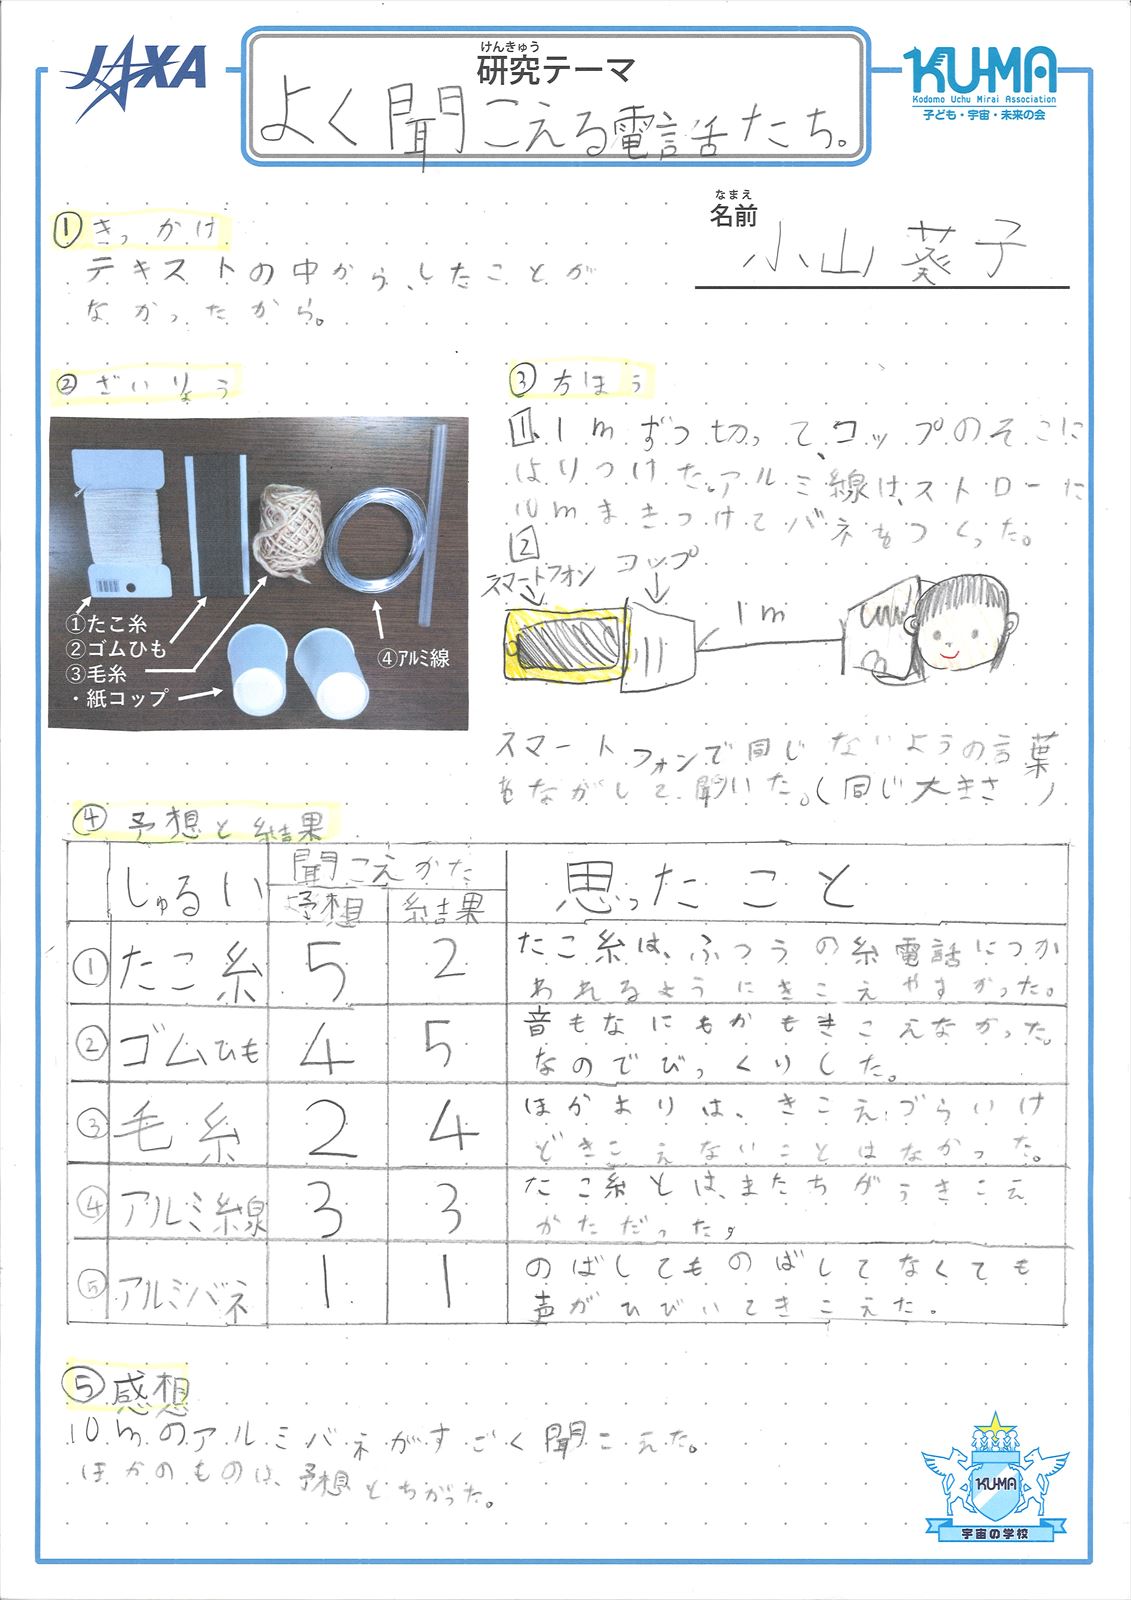 JAXA
けんきゅう
研究テーマ
よく聞こえる電話たち。
KU-MA
Kodomo Uchu Mirai Association
子ども・宇宙・未来の会
なまえ
名前
小山 葵子
① きっかけ
テキストの中から、したことが
なかったから。
② ざいりょう
①たこ糸
②ゴムひも
③毛糸
・紙コップ
④アルミ線
③ 方ほう
1. 1mずつ切って、コップのそこに
はりつけた。アルミ線は、ストローに
10mまきつけてバネをつくった。
2
スマートフォン
コップ
1m
スマートフォンで同じないようの言葉
をながして聞いた。(同じ大きさ)
④ 予想と結果
しゅるい 聞こえかた 思ったこと
予想 結果
① たこ糸 5 2 たこ糸は、ふつうの糸電話につか
われるようにきこえやすかった。
② ゴムひも 4 5 音もなにもかもきこえなかった。
なのでびっくりした。
③ 毛糸 2 4 ほかよりは、きこえづらいけ
どきこえないことはなかった。
④ アルミ線 3 3 たこ糸とは、またちがうきこえ
かただった。
⑤ アルミバネ 1 1 のばしてものばしてなくても
声がひびいてきこえた。
⑤ 感想
10mのアルミバネがすごく聞こえた。
ほかのものは、予想とちがった。
KU-MA
宇宙の学校